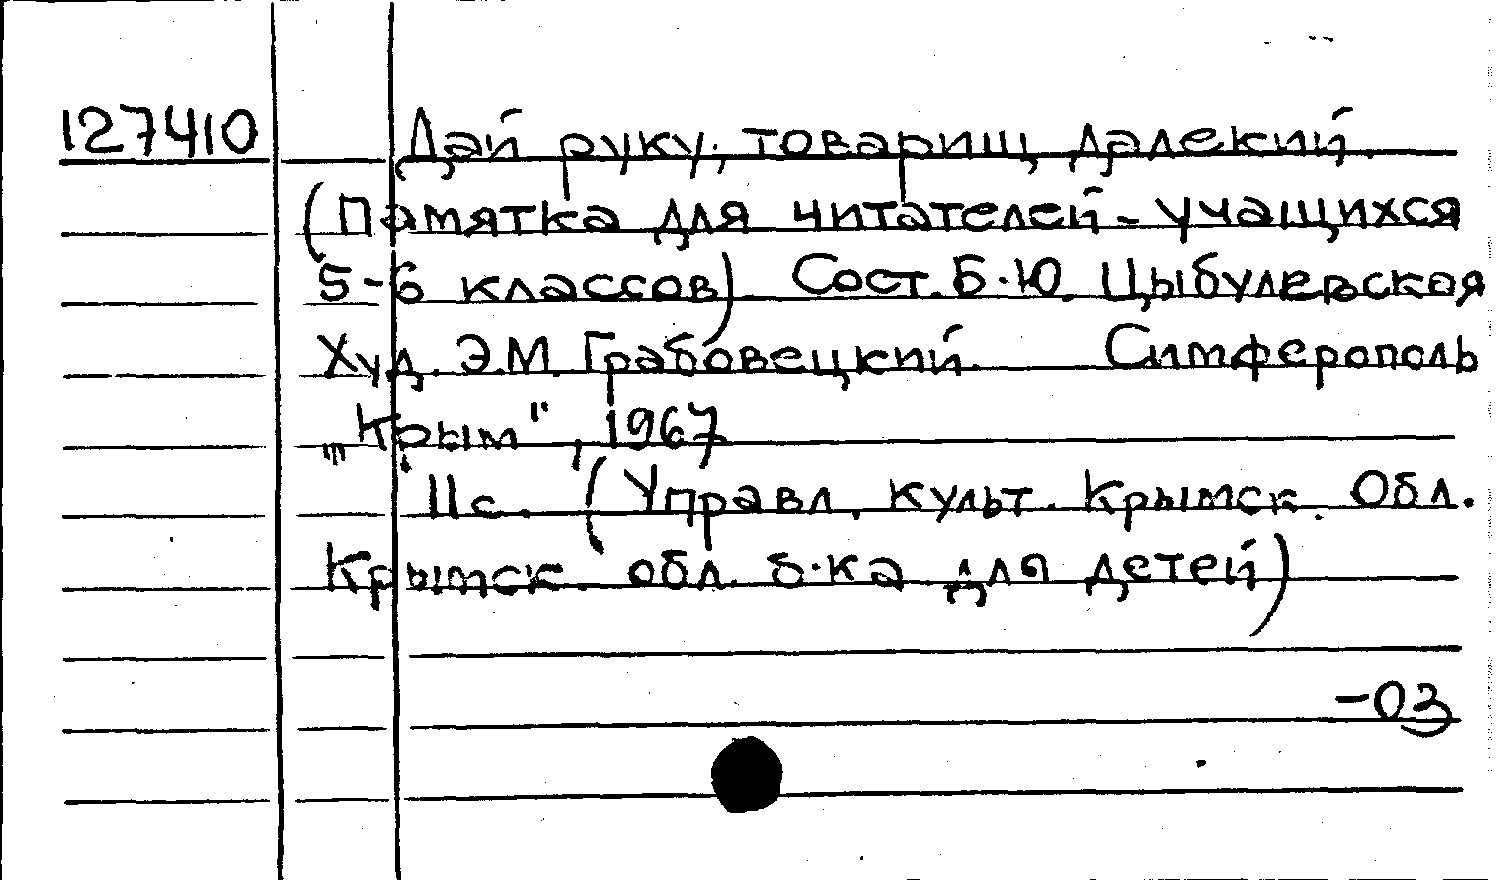 127410 Дай руку, товарищ далекий.
(Памятка для читателей - учащихся
5-6 классов). Сост. Б.Ю. Цыбулевская
Худ. Э.М. Грабовецкий. Симферополь
„Крым", 1967
11с. (Управл. культ. Крымск. Обл.
Крымск. обл. б-ка для детей)
-03